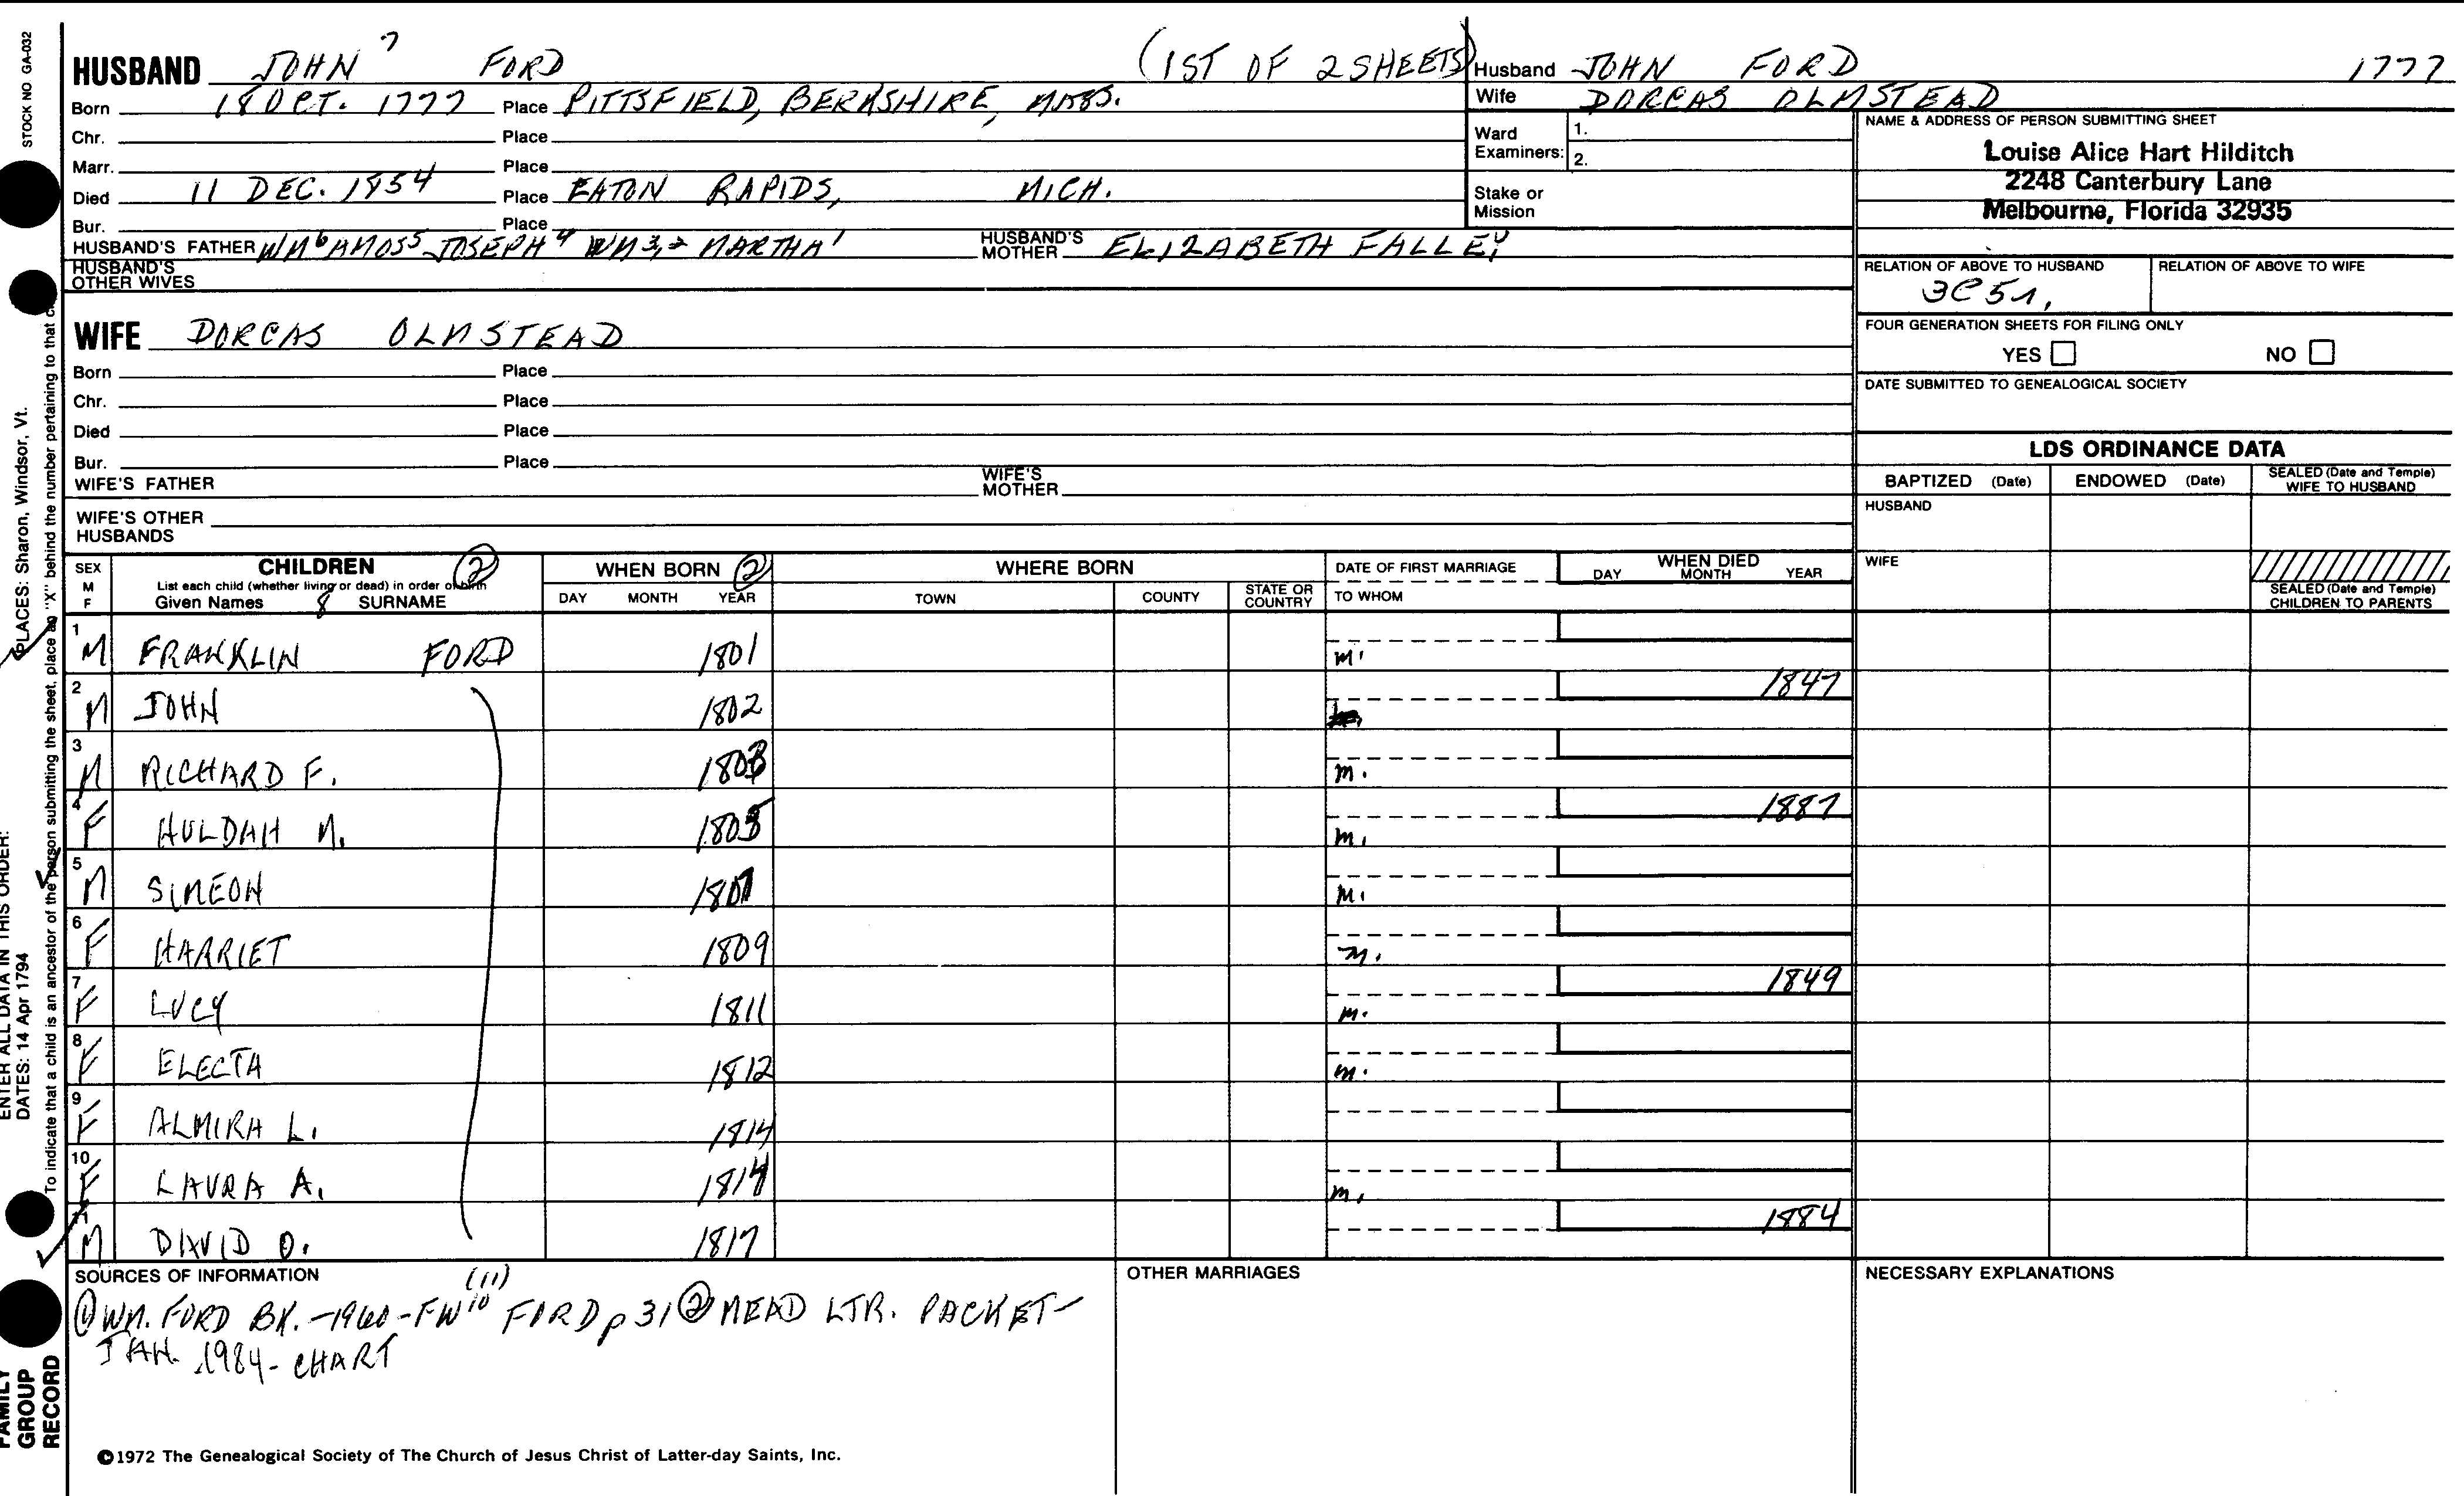 STOCK NO GA-032
HUSBAND JOHN 7 FORD (1ST OF 2 SHEETS)
Born 18 OCT. 1777 Place PITTSFIELD, BERKSHIRE, MASS.
Chr. Place
Marr. Place
Died 11 DEC. 1854 Place EATON RAPIDS, MICH.
Bur. Place
HUSBAND'S FATHER WM6 AMOS5 JOSEPH4 WM3,2 MARTHA1 HUSBAND'S MOTHER ELIZABETH FALLEY
HUSBAND'S OTHER WIVES
WIFE DORCAS OLMSTEAD
Born Place
Chr. Place
Died Place
Bur. Place
WIFE'S FATHER WIFE'S MOTHER
WIFE'S OTHER HUSBANDS
Husband JOHN FORD 1777
Wife DORCAS OLMSTEAD
Ward Examiners: 1.
2.
Stake or Mission
NAME & ADDRESS OF PERSON SUBMITTING SHEET
Louise Alice Hart Hilditch
2248 Canterbury Lane
Melbourne, Florida 32935
RELATION OF ABOVE TO HUSBAND RELATION OF ABOVE TO WIFE
3C5R,
FOUR GENERATION SHEETS FOR FILING ONLY
YES NO
DATE SUBMITTED TO GENEALOGICAL SOCIETY
LDS ORDINANCE DATA
BAPTIZED (Date) ENDOWED (Date) SEALED (Date and Temple) WIFE TO HUSBAND
HUSBAND
WIFE
SEALED (Date and Temple) CHILDREN TO PARENTS
SEX M F CHILDREN 2 WHEN BORN 2 WHERE BORN DATE OF FIRST MARRIAGE WHEN DIED
List each child (whether living or dead) in order of birth
Given Names 8 SURNAME DAY MONTH YEAR TOWN COUNTY STATE OR COUNTRY TO WHOM DAY MONTH YEAR
1 M FRANKLIN FORD 1801 m.
2 M JOHN 1802 1847
3 M RICHARD F. 1803 m.
4 F HULDAH M. 1805 m. 1887
5 M SIMEON 1807 m.
6 F HARRIET 1809 m.
7 F LUCY 1811 m. 1849
8 F ELECTA 1812 m.
9 F ALMIRA L. 1814
10 F LAURA A. 1814 m.
11 M DAVID O. 1817 1884
SOURCES OF INFORMATION (11) OTHER MARRIAGES NECESSARY EXPLANATIONS
1 WM. FORD BK. -1960-FW10 FORD p 31 2 MEAD LTR. PACKET-
JAN. 1984- CHART
©1972 The Genealogical Society of The Church of Jesus Christ of Latter-day Saints, Inc.
PLACES: Sharon, Windsor, Vt.
ENTER ALL DATA IN THIS ORDER:
DATES: 14 Apr 1794
To indicate that a child is an ancestor of the person submitting the sheet, place an "X" behind the number pertaining to that
FAMILY
GROUP
RECORD